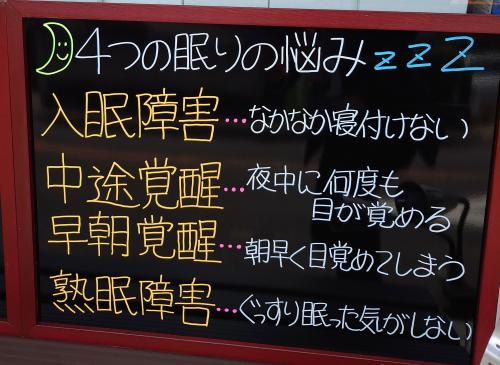 4つの眠りの悩みzzZ
入眠障害…なかなか寝付けない
中途覚醒…夜中に何度も
目が覚める
早朝覚醒…朝早く目覚めてしまう
熟眠障害…ぐっすり眠った気がしない